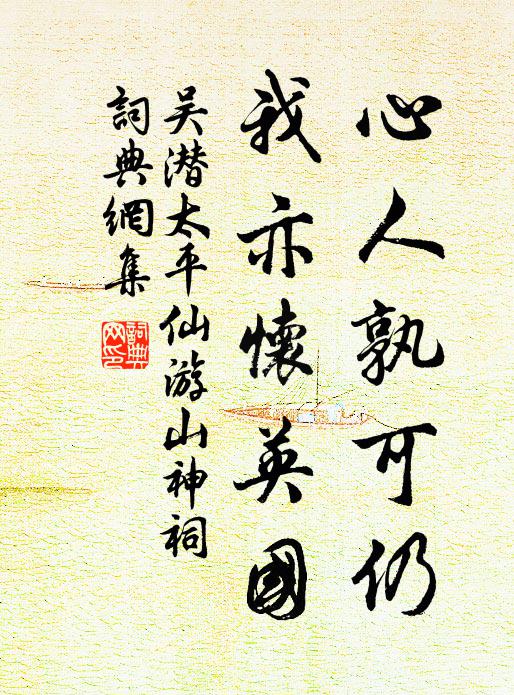 心人孰可仍
我亦懷英國
吴潜太平仙游山神祠
詞典網集
詞典網印